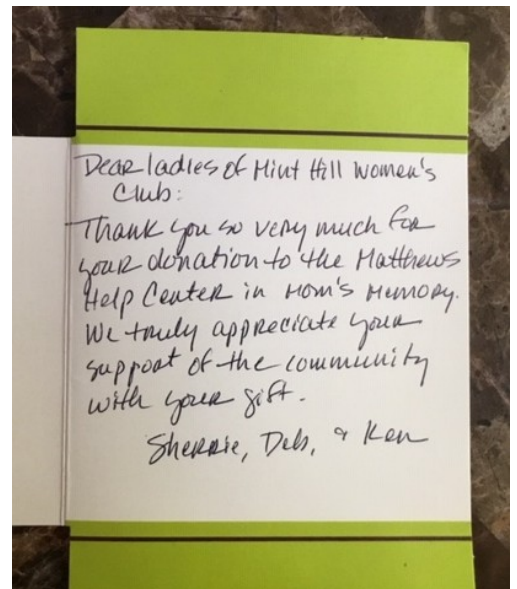 Dear ladies of Mint Hill Women's
Club:
Thank you so very much for
your donation to the Matthews
Help Center in Mom's Memory.
We truly appreciate your
support of the community
with your gift.
Sherrie, Deb, & Ken